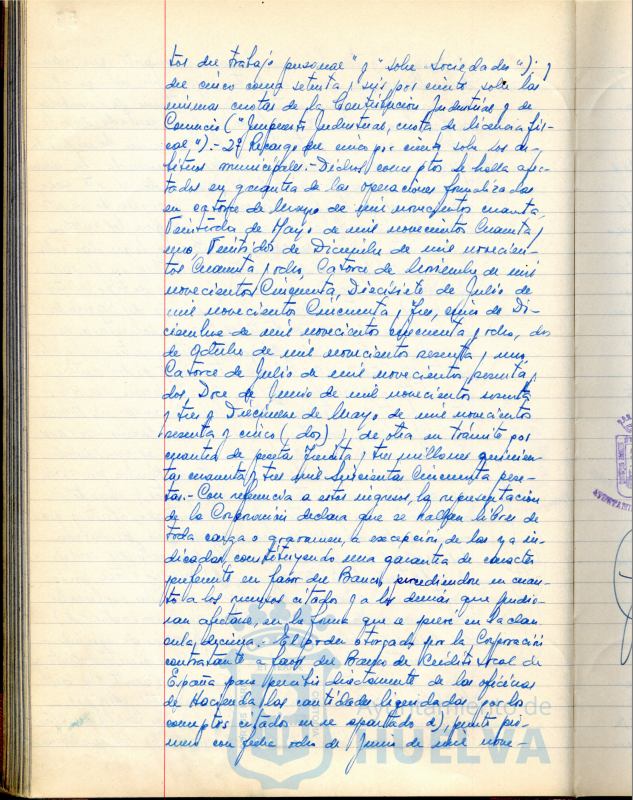 tos del trabajo personal" y "sobre Sociedades"); y
del cinco coma setenta y seis por ciento sobre las
mismas cuotas de la Contribución Industrial y de
Comercio ("Impuesto Industrial, cuota de licencia fis-
cal").- 2º Recargo del cinco por ciento sobre los ar-
bitrios municipales.- Dichos conceptos se halla afec-
tados en garantía de las operaciones formalizadas
en catorce de Mayo de mil novecientos cuarenta,
Veintitrés de Mayo de mil novecientos Cuarenta y
uno, Veintidos de Diciembre de mil novecien-
tos Cuarenta y ocho, Catorce de Noviembre de mil
novecientos Cincuenta, Diecisiete de Julio de
mil novecientos Cincuenta y Tres, cinco de Di-
ciembre de mil novecientos cincuenta y ocho, dos
de Octubre de mil novecientos sesenta y uno,
Catorce de Julio de mil novecientos sesenta y
dos, Doce de Junio de mil novecientos sesenta
y tres y Diecinueve de Mayo de mil novecientos
sesenta y cinco (dos) y de otra en trámite por
cuantía de pesetas Treinta y tres millones quinien-
tas cuarenta y tres mil Seiscientas Cincuenta pese-
tas.- Con referencia a estos ingresos, la representación
de la Corporación declara que se hallan libres de
toda carga o gravamen, a excepción, de los ya in-
dicados, constituyendo una garantía de caracter
preferente en favor del Banco, procediendose en cuan-
to a los recursos citados y a los demás que pudie-
ran afectarse, en la forma que se prevé en la claus
ula decima.- El poder otorgado por la Corporación
contratante a favor del Banco de Crédito Local de
España para percibir directamente de las oficinas
de Hacienda las cantidades liquidadas por los
conceptos citados en el apartado a), punto pri-
mero con fecha ocho de Junio de mil nove-
Ayuntamiento de
HUELVA